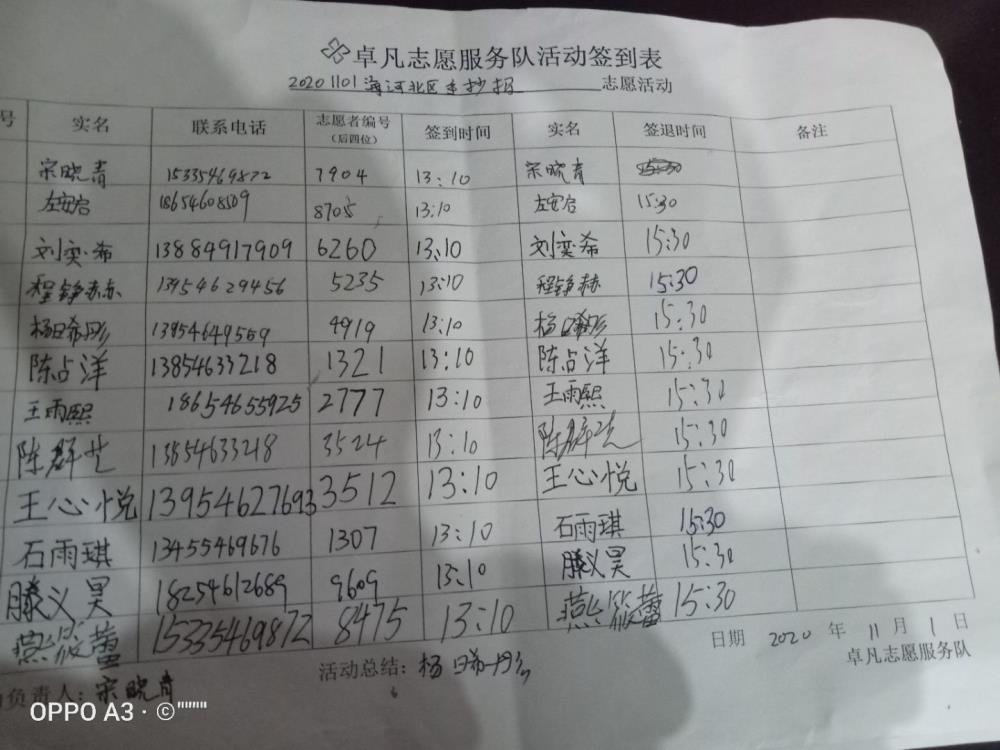 卓凡志愿服务队活动签到表
20201101海河北区 志愿活动
号 实名 联系电话 志愿者编号(后四位) 签到时间 实名 签退时间 备注
宋晓青 15335469872 7904 13:10 宋晓青
左安启 18654608509 8705 13:10 左安启 15:30
刘奕希 13884917909 6260 13:10 刘奕希 15:30
程铮赫 13954629456 5235 13:10 程铮赫 15:30
杨日希彤 13954649559 4919 13:10 杨日希彤 15:30
陈占洋 13854633218 1321 13:10 陈占洋 15:30
王雨熙 18654655925 2777 13:10 王雨熙 15:30
陈群 13854633218 3524 13:10 陈群 15:30
王心悦 13954627693 3512 13:10 王心悦 15:30
石雨琪 13455469676 1307 13:10 石雨琪 15:30
滕义昊 18254612689 9609 13:10 滕义昊 15:30
燕筱蕾 15335469872 8475 13:10 燕筱蕾 15:30
日期 2020 年 11 月 1 日
负责人:宋晓青 活动总结:杨日希彤 卓凡志愿服务队
OPPO A3 · ©""""